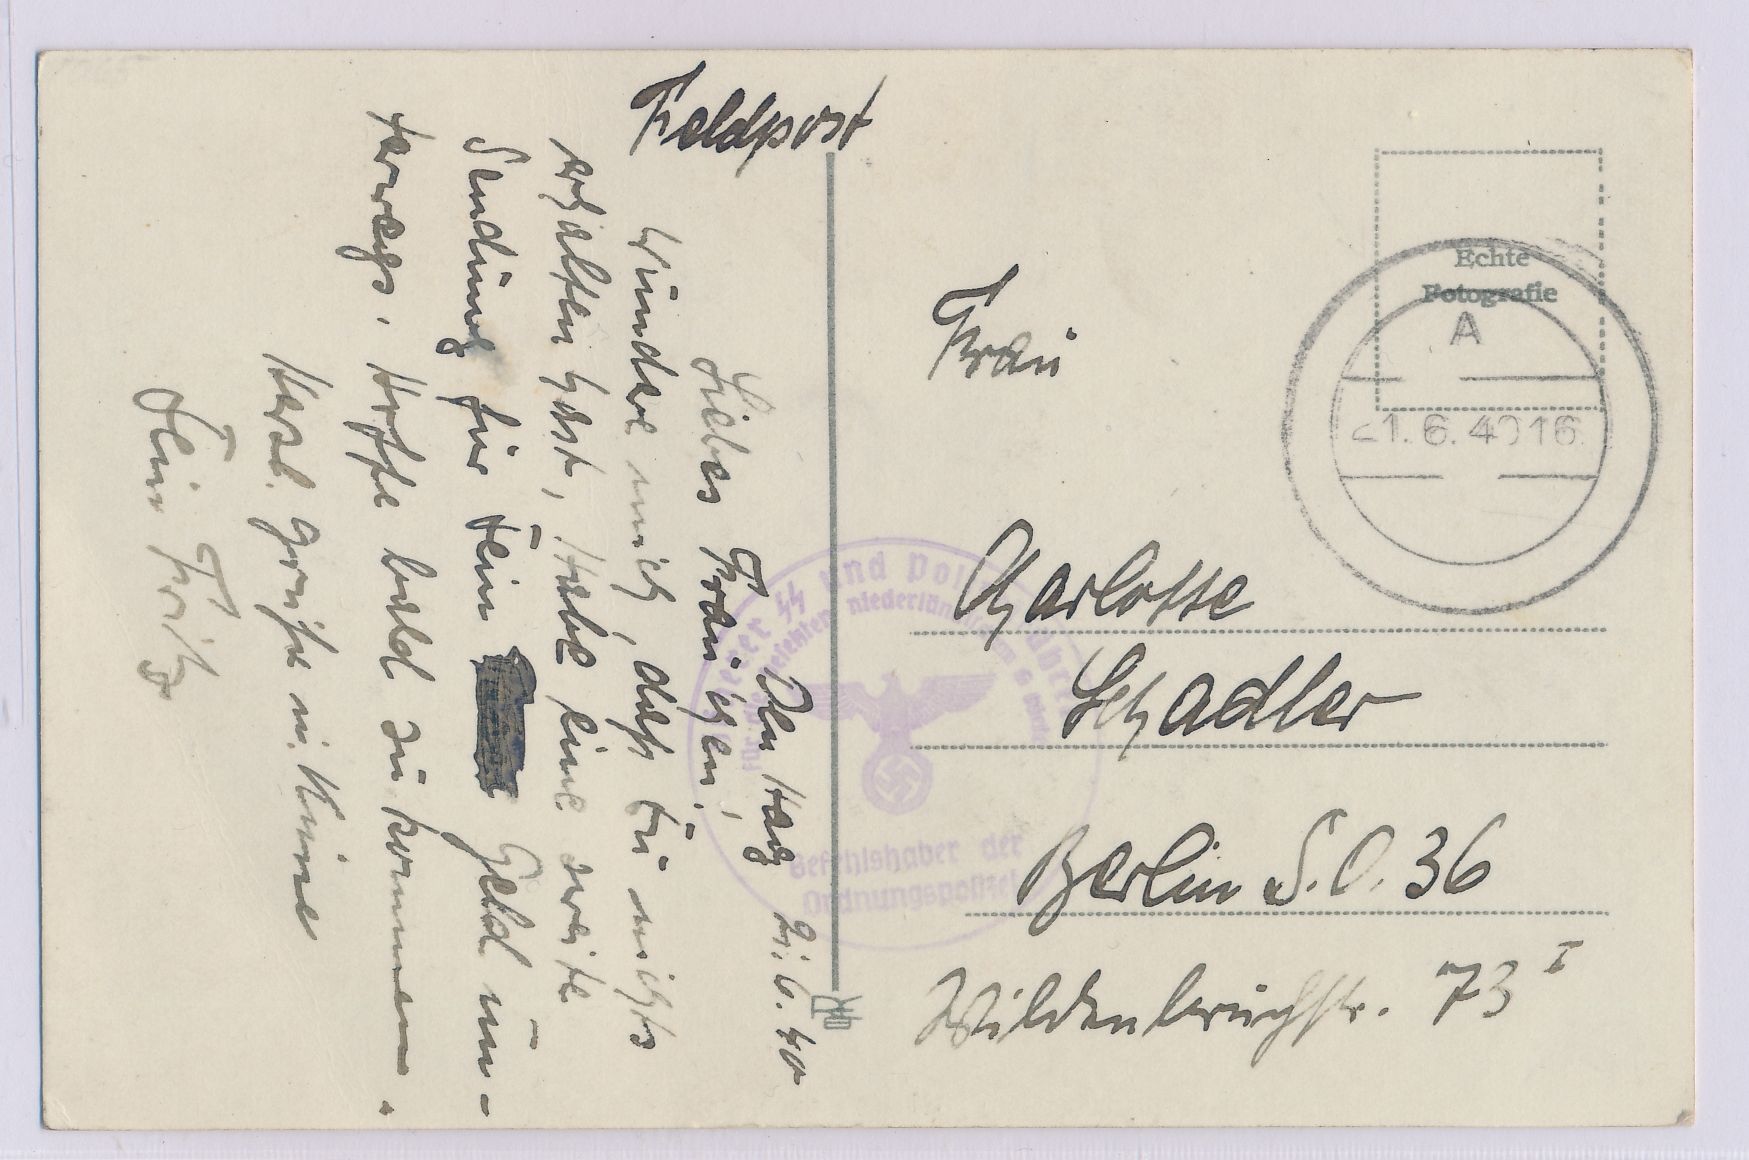 Feldpost
Den Haag 21.6.40
Liebes Frauchen!
Wundre mich, daß Du nichts
erhalten hast, Habe eine zweite
Sendung für Dein Geld un-
terwegs. Hoffe bald zu kommen.
Herzl. Grüße m. Kleine
Dein Fritz
Echte
Fotografie
A
21.6.40 16
Frau
Charlotte
Schadler
Berlin S.O. 36
Wildenbruchstr. 73 I
Höherer SS und Polizeiführer
für die besetzten niederländischen Gebiete
Befehlshaber der
Ordnungspolizei